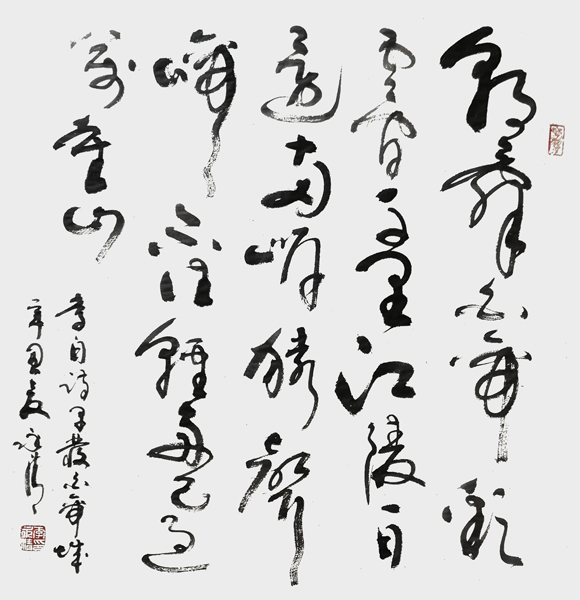 朝辭白帝彩
雲間千里江陵一日
還兩岸猿聲
啼不住輕舟已過
萬重山
李白詩早發白帝城
辛丑夏